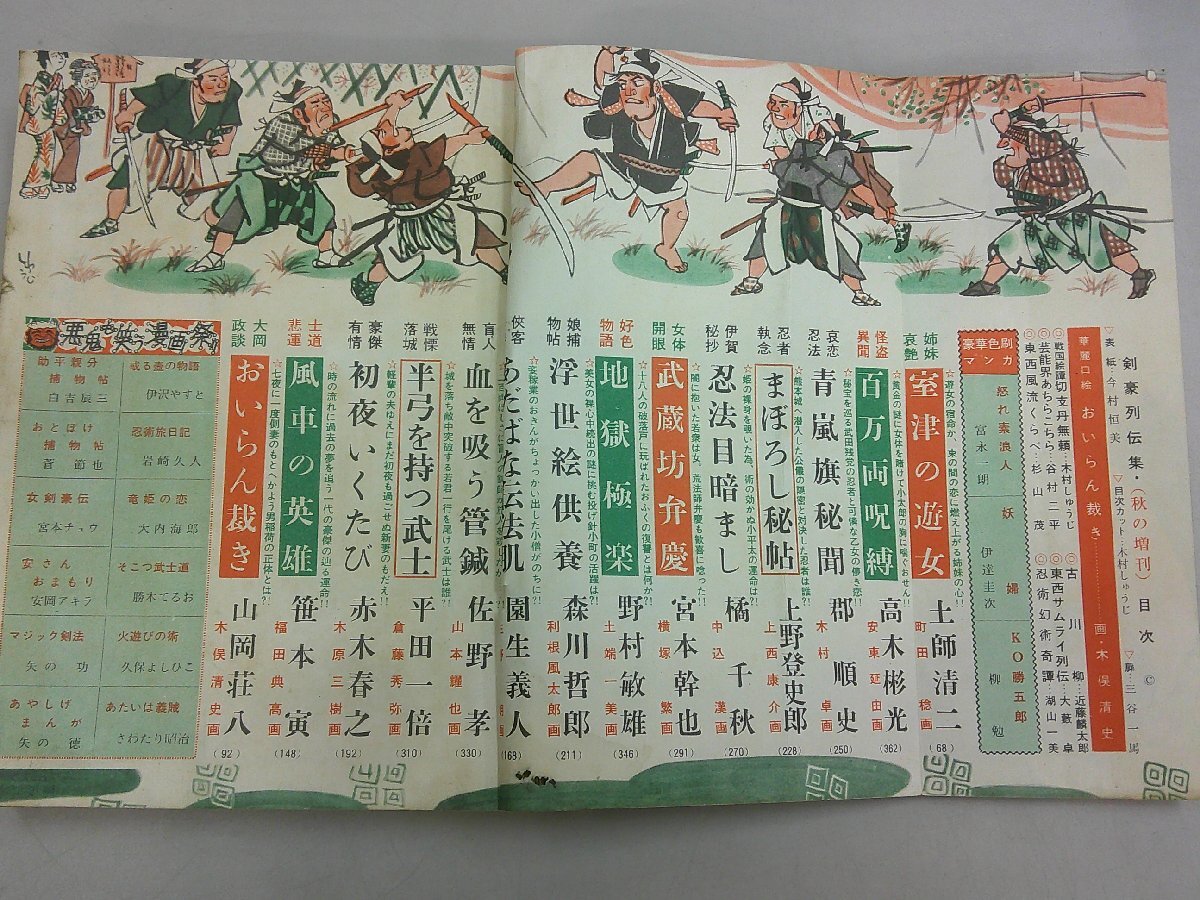 剣豪列伝集・(秋の増刊) 目次 ©
▽表紙・今村恒美 ▽目次カット・木村しゅうじ ▽扉…三谷一馬
華麗口絵 おいらん裁き……画・木俣清史
戦国絵羅切支丹無頼…木村しゅうじ
◎芸能界あちらこちら…谷村二平
◎東西風流くらべ…杉山茂
◎古川柳…近藤麟太郎
◎東西サムライ列伝…大藪卓
◎忍術幻術奇譚…湖山一美
豪華色刷マンカ
怒れ素浪人
富永一朗
妖婦
伊達圭次
KO勝五郎
柳勉
姉妹哀艶
☆遊女の宿命か、束の間の恋に燃え上がる姉妹の心!!
室津の遊女 土師清二
町田稔画
(68)
怪盗異聞
☆黄金の謎に女体を賭けて小太郎の胸に喘ぐおせん!!
百万両呪縛 高木彬光
安東延由画
(362)
哀恋忍法
☆秘宝を巡る武田残党の忍者と可憐な乙女の儚き恋!!
青嵐旗秘聞 郡順史
木村卓画
(250)
忍者執念
☆熊本城へ潜入した公儀の隠密と対決した忍者は誰?!
まぼろし秘帖 上野登史郎
上西康介画
(228)
伊賀秘抄
☆姫の裸身を覗いた為、術の効かぬ小平太の運命は?!
忍法目暗まし 橘千秋
中込漢画
(270)
女体開眼
☆闇に抱いた若衆は女、荒法師弁慶も歓喜に唸った!!
武蔵坊弁慶 宮本幹也
横塚繁画
(291)
好色物語
☆十八人の破落戸に玩ばれたおふくの復讐とは何か?!
地獄極楽 野村敏雄
土端一美画
(346)
娘捕物帖
☆美女の裸心中続出の謎に挑む投げ針小町の活躍は?!
浮世絵供養 森川哲郎
利根風太郎画
(211)
侠客
☆妾稼業のおきんがちょっかい出した小僧がのちに?!
あだばな伝法肌 園生義人
(169)
盲人無情
血を吸う管鍼 佐野孝
山本耀也画
(330)
戦慄落城
☆城を落ち敵中突破する若君一行を尾ける武士は誰?!
半弓を持つ武士 平田一倍
倉藤秀弥画
(310)
豪傑有情
☆軽輩の夫ゆえにまだ初夜も過ごせぬ新妻のもだえ!!
初夜いくたび 赤木春之
木原三樹画
(192)
士道悲運
☆時の流れに過去の夢を追う一代の豪傑の辿る運命!!
風車の英雄 笹本寅
福田典高画
(148)
大岡政談
☆七夜に一度側妻のもとへかよう男稲荷の正体とは?!
おいらん裁き 山岡荘八
木俣清史画
(92)
悪鬼も笑う漫画祭
助平親分捕物帖
白吉辰三
或る壺の物語
伊沢やすと
おとぼけ捕物帖
菅節也
忍術旅日記
岩崎久人
女剣豪伝
宮本チュウ
竜姫の恋
大内海郎
安さんおまもり
安岡アキラ
そこつ武士道
勝木てるお
マジック剣法
矢の功
火遊びの術
久保よしひこ
あやしげまんが
矢の徳
あたいは義賊
さわたり昭治